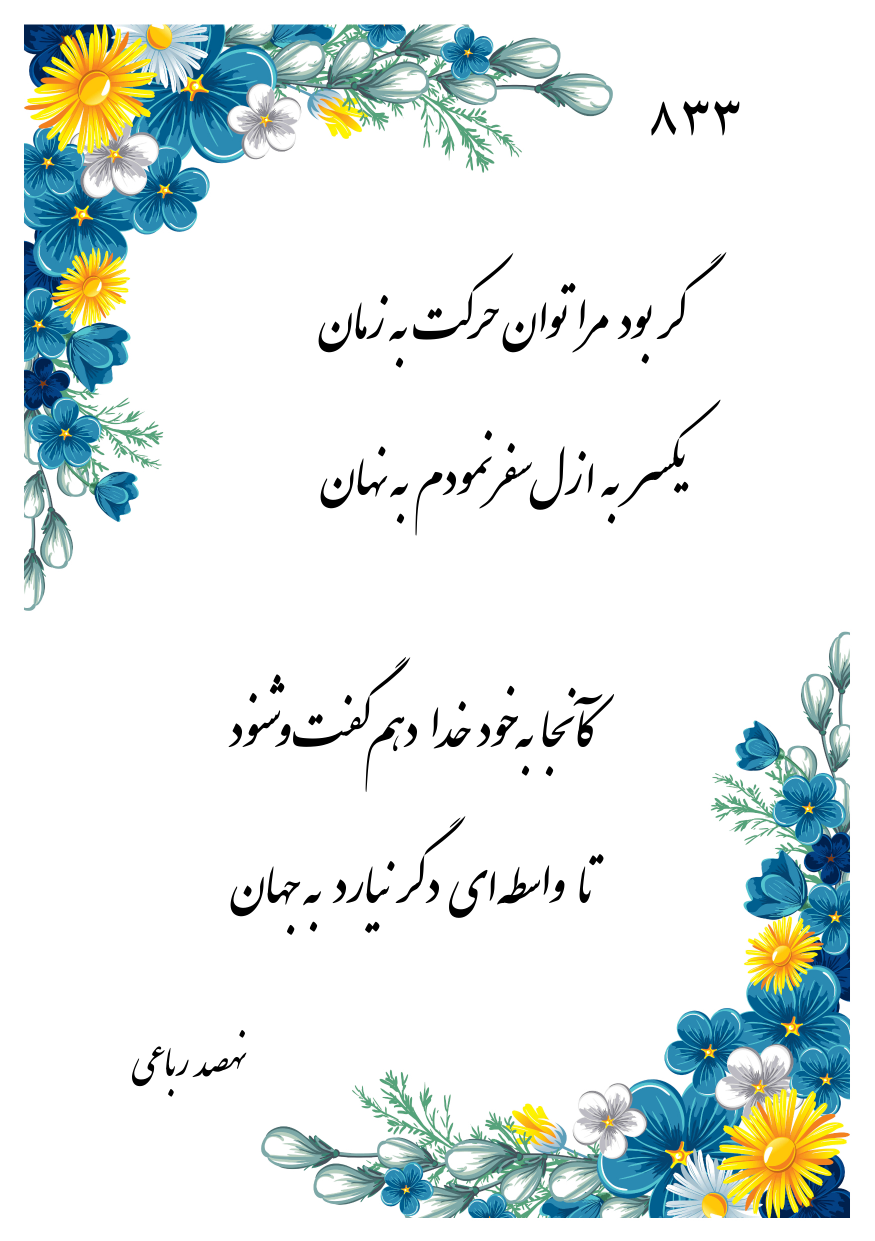 ۸۳۳
گر بود مرا توان حرکت به زمان
یکسر به ازل سفر نمودم به نهان
کآنجا به خود خدا دهم گفت و شنود
تا واسطه‌ای دگر نیارد به جهان
نهصد رباعی